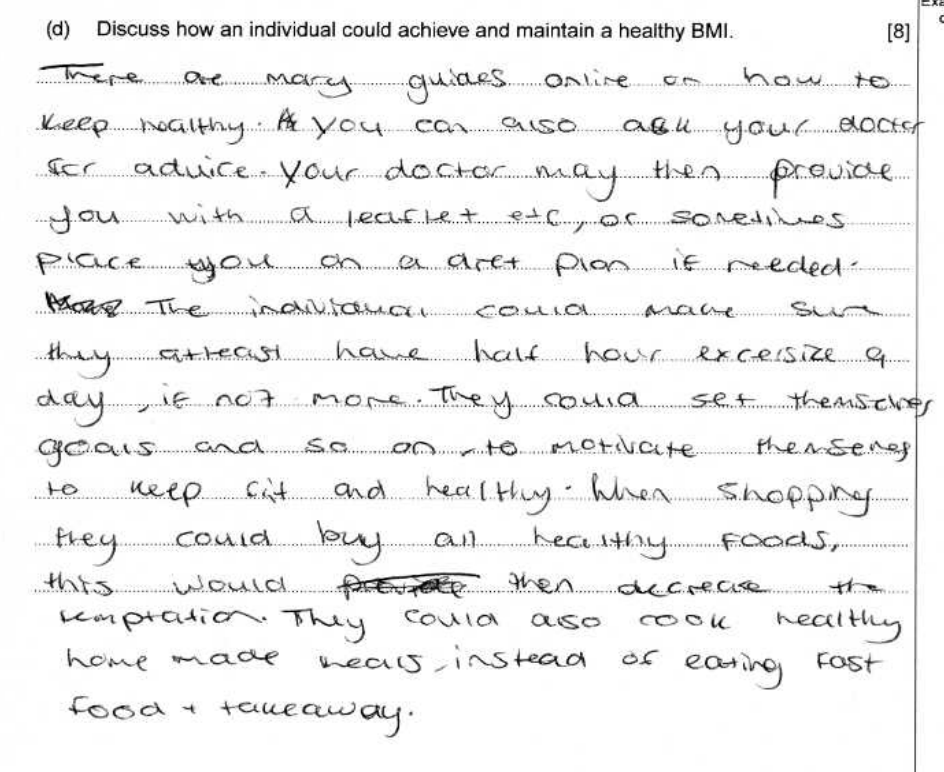 Exa
(d) Discuss how an individual could achieve and maintain a healthy BMI. [8]
There are many guides online on how to
keep healthy. You can also ask your doctor
for advice. Your doctor may then provide
you with a leaflet etc, or sometimes
place you on a diet plan if needed.
The individual could make sure
they atleast have half hour excersize a
day, if not more. They could set themselves
goals and so on, to motivate themselves
to keep fit and healthy. When shopping
they could buy all healthy foods,
this would then decrease the
temptation. They could also cook healthy
home made meals, instead of eating fast
food + takeaway.